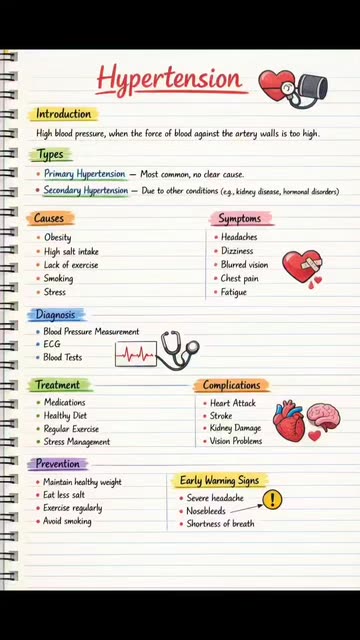 Hypertension
Introduction
High blood pressure, when the force of blood against the artery walls is too high.
Types
• Primary Hypertension — Most common, no clear cause.
• Secondary Hypertension — Due to other conditions (e.g., kidney disease, hormonal disorders)
Causes
• Obesity
• High salt intake
• Lack of exercise
• Smoking
• Stress
Symptoms
• Headaches
• Dizziness
• Blurred vision
• Chest pain
• Fatigue
Diagnosis
• Blood Pressure Measurement
• ECG
• Blood Tests
Treatment
• Medications
• Healthy Diet
• Regular Exercise
• Stress Management
Complications
• Heart Attack
• Stroke
• Kidney Damage
• Vision Problems
Prevention
• Maintain healthy weight
• Eat less salt
• Exercise regularly
• Avoid smoking
Early Warning Signs
• Severe headache
• Nosebleeds
• Shortness of breath
!